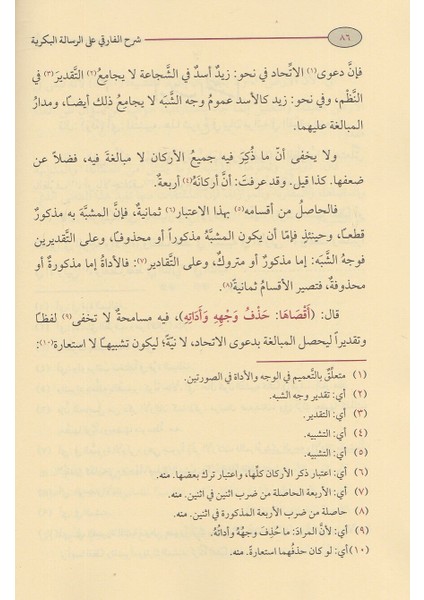 ٨٦ شرح الفارقي على الرسالة البكرية
فإنَّ دعوى(١) الاتّحاد في نحو: زيدٌ أسدٌ في الشَّجاعة لا يجامِعُ(٢) التقديرَ(٣) في
النَّظْم، وفي نحو: زيد كالأسد عمومُ وجه الشَّبَه لا يجامعُ ذلك أيضًا، ومدارُ
المبالغة عليهما.
ولا يخفى أنّ ما ذُكِرَ فيه جميعُ الأركان لا مبالغةَ فيه، فضلاً عن
ضعفها. كذا قيل. وقد عرفتَ: أنَّ أركانَهُ(٤) أربعةٌ.
فالحاصلُ من أقسامه(٥) بهذا الاعتبار(٦) ثمانيةٌ، فإنَّ المشبَّهَ به مذكورٌ
قطعًا، وحينئذٍ فإمّا أن يكون المشبَّهُ مذكوراً أو محذوفًا، وعلى التَّقديرين
فوجهُ الشَّبَه: إما مذكورٌ أو متروكٌ، وعلى التَّقادير(٧): فالأداةُ إما مذكورةٌ أو
محذوفةٌ، فتصير الأقسامُ ثمانيةً(٨).
قال: (أَقْصَاهَا: حَذْفُ وَجْهِهِ وَأَدَاتِهِ)، فيه مسامحةٌ لا تخفى(٩) لفظًا
وتقديراً ليحصل المبالغة بدعوى الاتحاد، لا نيّةً؛ ليكون تشبيهًا لا استعارة(١٠):
(١) متعلِّقٌ بالتَّعميم في الوجه والأداة في الصورتين.
(٢) أي: تقدير وجه الشبه.
(٣) أي: التقدير.
(٤) أي: التشبيه.
(٥) أي: التشبيه.
(٦) أي: اعتبار ذكر الأركان كلِّها، واعتبار ترك بعضها. منه.
(٧) أي: الأربعة الحاصلة من ضرب اثنين في اثنين. منه.
(٨) حاصلة من ضرب الأربعة المذكورة في اثنين. منه.
(٩) أي: لأنَّ المرادَ: ما حُذِفَ وجهُهُ وأداتُهُ.
(١٠) أي: لو كان حذفُهما استعارةً. منه.